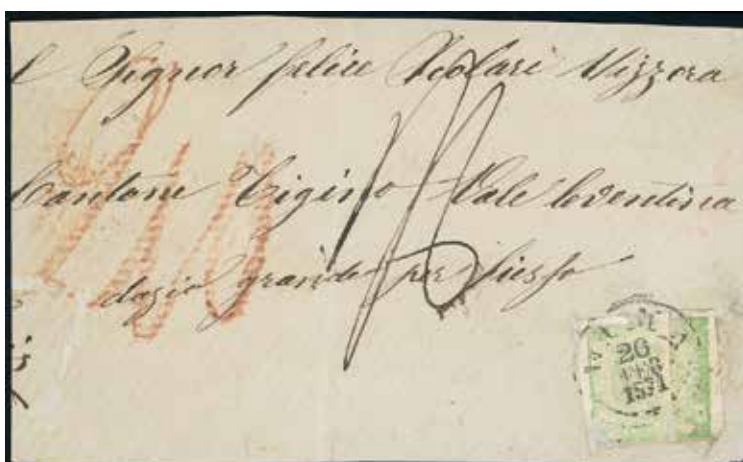 l Signor felice Scolari Vizzera
Cantone Tigino Vale leventina
dazio grande per fiesso
26
1871